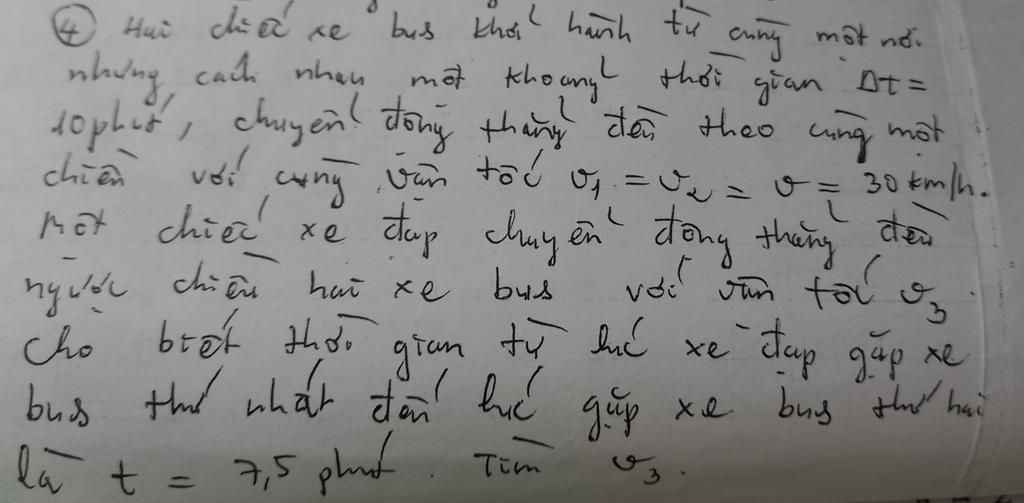 ④ Hai chiếc xe bus khởi hành từ cùng một nơi
nhưng cách nhau một khoảng thời gian Δt =
10phút, chuyển động thẳng đều theo cùng một
chiều với cùng vận tốc v₁ = v₂ = v = 30 km/h.
Một chiếc xe đạp chuyển động thẳng đều
ngược chiều hai xe bus với vận tốc v₃.
Cho biết thời gian từ lúc xe đạp gặp xe
bus thứ nhất đến lúc gặp xe bus thứ hai
là t = 7,5 phút. Tìm v₃.